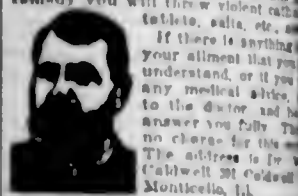 remedy you will throw violent cath
tablets, salts, etc., a
If there is anything
your ailment that you
understand, or if you
any medical advice,
to the doctor and he
answer you fully. Th
no charge for this
The address is Dr.
Caldwell Caldwell
Monticello, Ill.